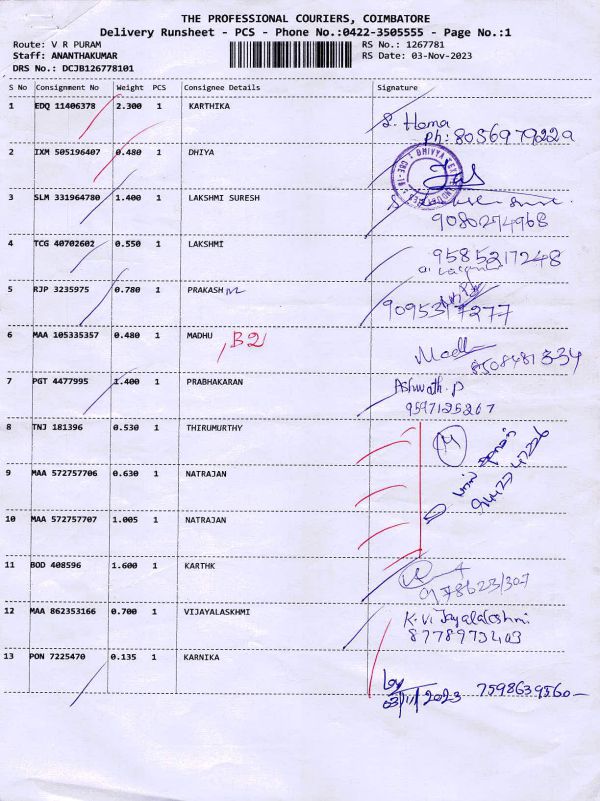 THE PROFESSIONAL COURIERS, COIMBATORE
Delivery Runsheet - PCS - Phone No.:0422-3505555 - Page No.:1
Route: V R PURAM RS No.: 1267781
Staff: ANANTHAKUMAR RS Date: 03-Nov-2023
DRS No.: DCJB126778101
S No Consignment No Weight PCS Consignee Details Signature
1 EDQ 11406378 2.300 1 KARTHIKA
S. Hema
Ph: 8056979229
2 IXM 505196407 0.480 1 DHIYA
3 SLM 331964780 1.400 1 LAKSHMI SURESH
9080274968
4 TCG 40702602 0.550 1 LAKSHMI
9585217248
5 RJP 3235975 0.780 1 PRAKASH
9095317277
6 MAA 105335357 0.480 1 MADHU B2
Madhu
8508481334
7 PGT 4477995 1.400 1 PRABHAKARAN
Ashwath. P
9597125267
8 TNJ 181396 0.530 1 THIRUMURTHY
9 MAA 572757706 0.630 1 NATRAJAN
10 MAA 572757707 1.005 1 NATRAJAN
11 BOD 408596 1.600 1 KARTHK
12 MAA 862353166 0.700 1 VIJAYALASKHMI
K. Vijayalakshmi
8778973403
13 PON 7225470 0.135 1 KARNIKA
03/11/2023 7598639560